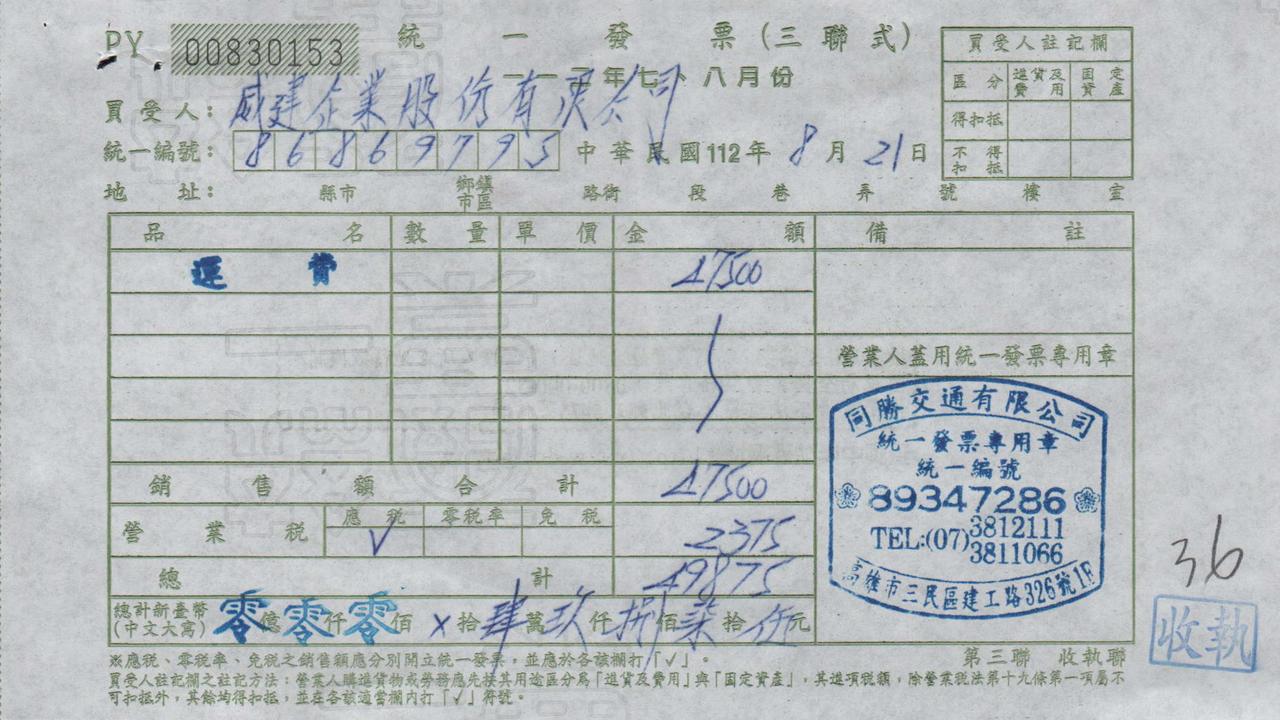 PY 00830153 統一發票(三聯式)
一一二年七、八月份
買受人:威建企業股份有限公司
統一編號:86869795 中華民國112年8月21日
地址: 縣市 鄉鎮市區 路街 段 巷 弄 號 樓 室
買受人註記欄
區分 進貨及費用 固定資產
得扣抵
不得扣抵
品名 數量 單價 金額 備註
運費 47500
營業人蓋用統一發票專用章
銷售額合計 47500
營業稅 應稅 零稅率 免稅
√ 2375
總計 49875
總計新臺幣(中文大寫) 零億零仟零佰×拾肆萬玖仟捌佰柒拾伍元
司勝交通有限公司
統一發票專用章
統一編號
89347286
TEL:(07)3812111
3811066
高雄市三民區建工路326號1F
36
收執
※應稅、零稅率、免稅之銷售額應分別開立統一發票,並應於各該欄打「√」。
第三聯 收執聯
買受人註記欄之註記方法:營業人購進貨物或勞務應先按其用途區分為「進貨及費用」與「固定資產」,其進項稅額,除營業稅法第十九條第一項屬不
可扣抵外,其餘均得扣抵,並在各該適當欄內打「√」符號。